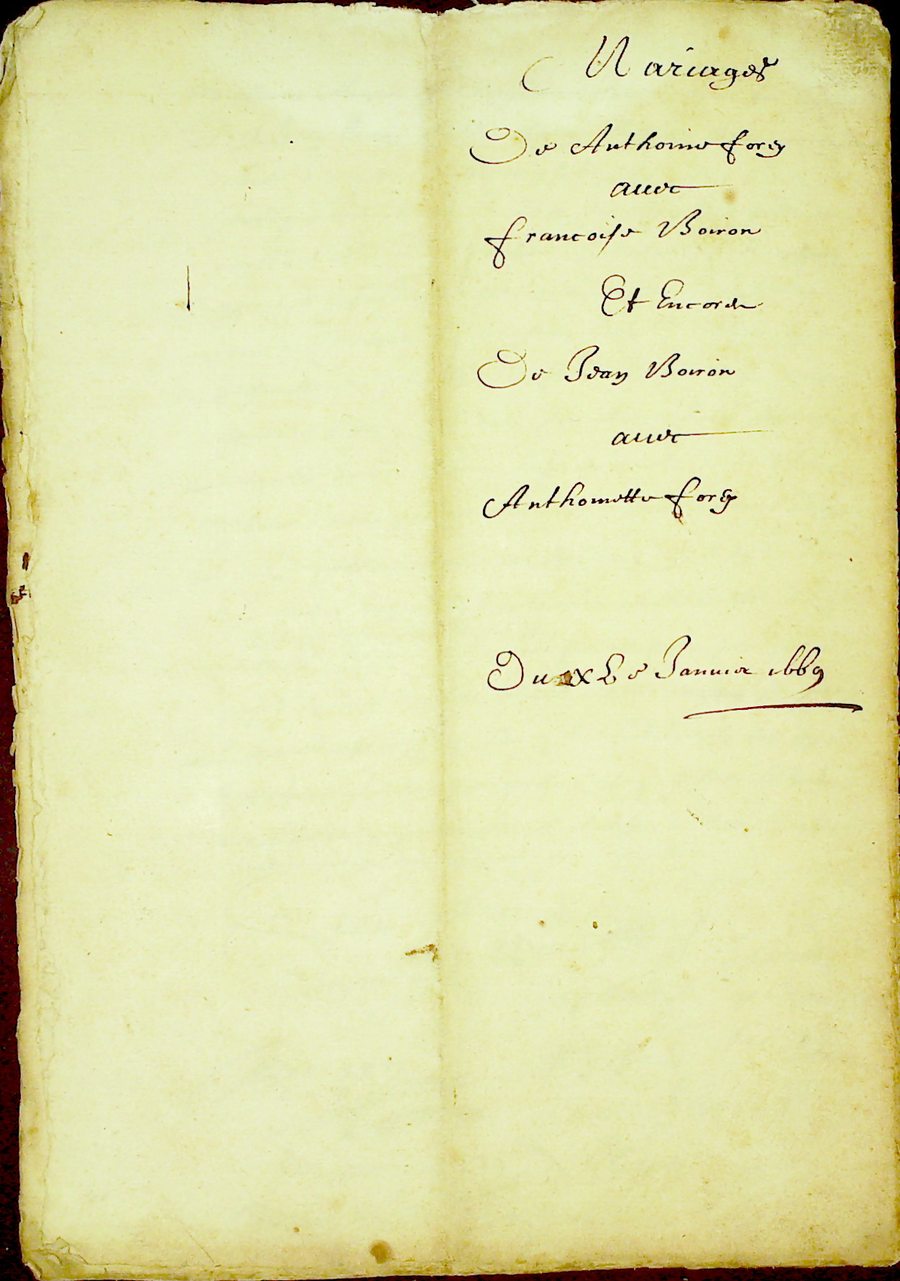 Mariages
De Anthoine forey
avec
francoise Boiron
Et Encores
De Jean Boiron
avec
Anthoinette forey
Du Janvier 1669